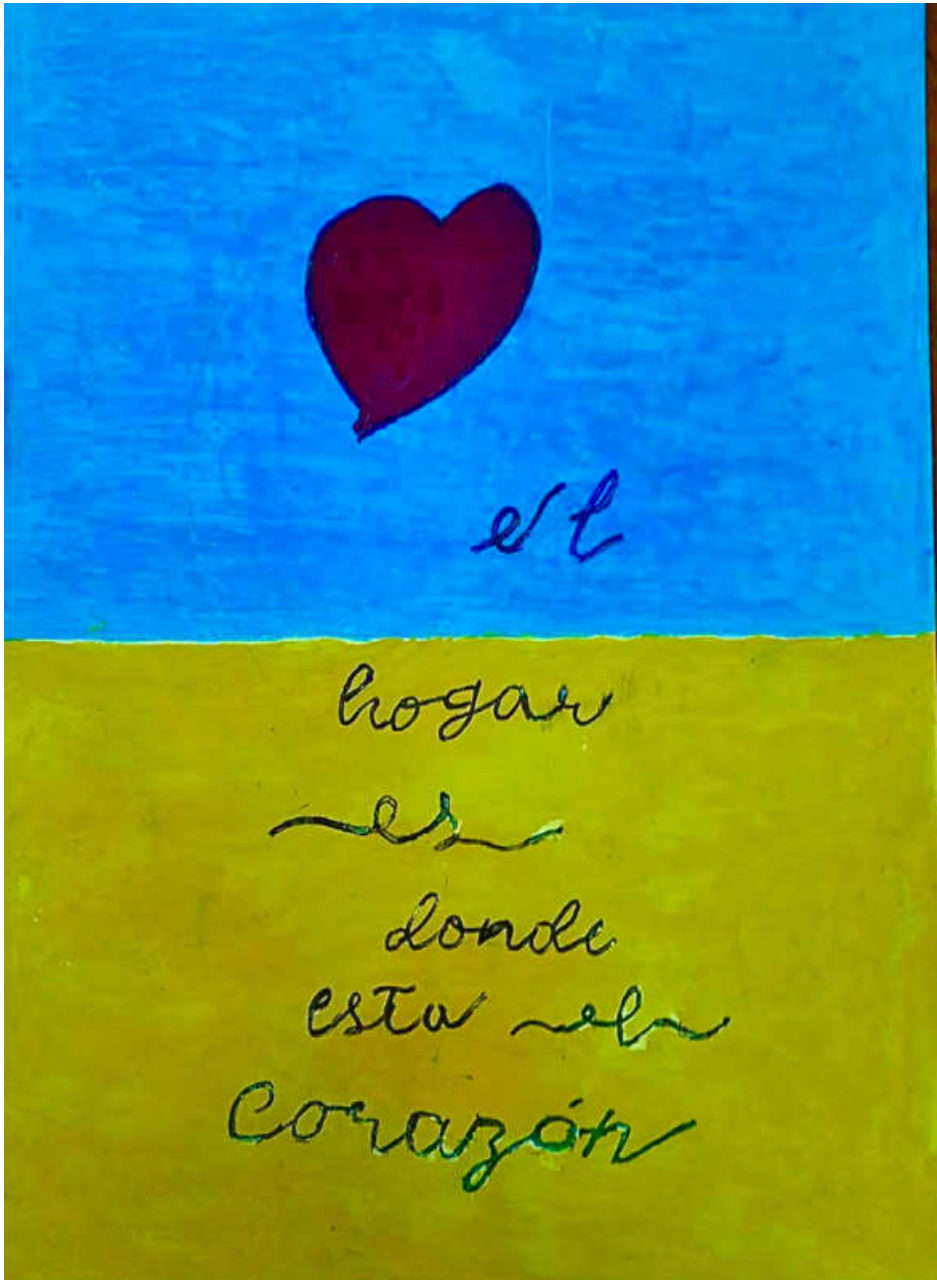 el
hogar
es
donde
esta el
Corazón